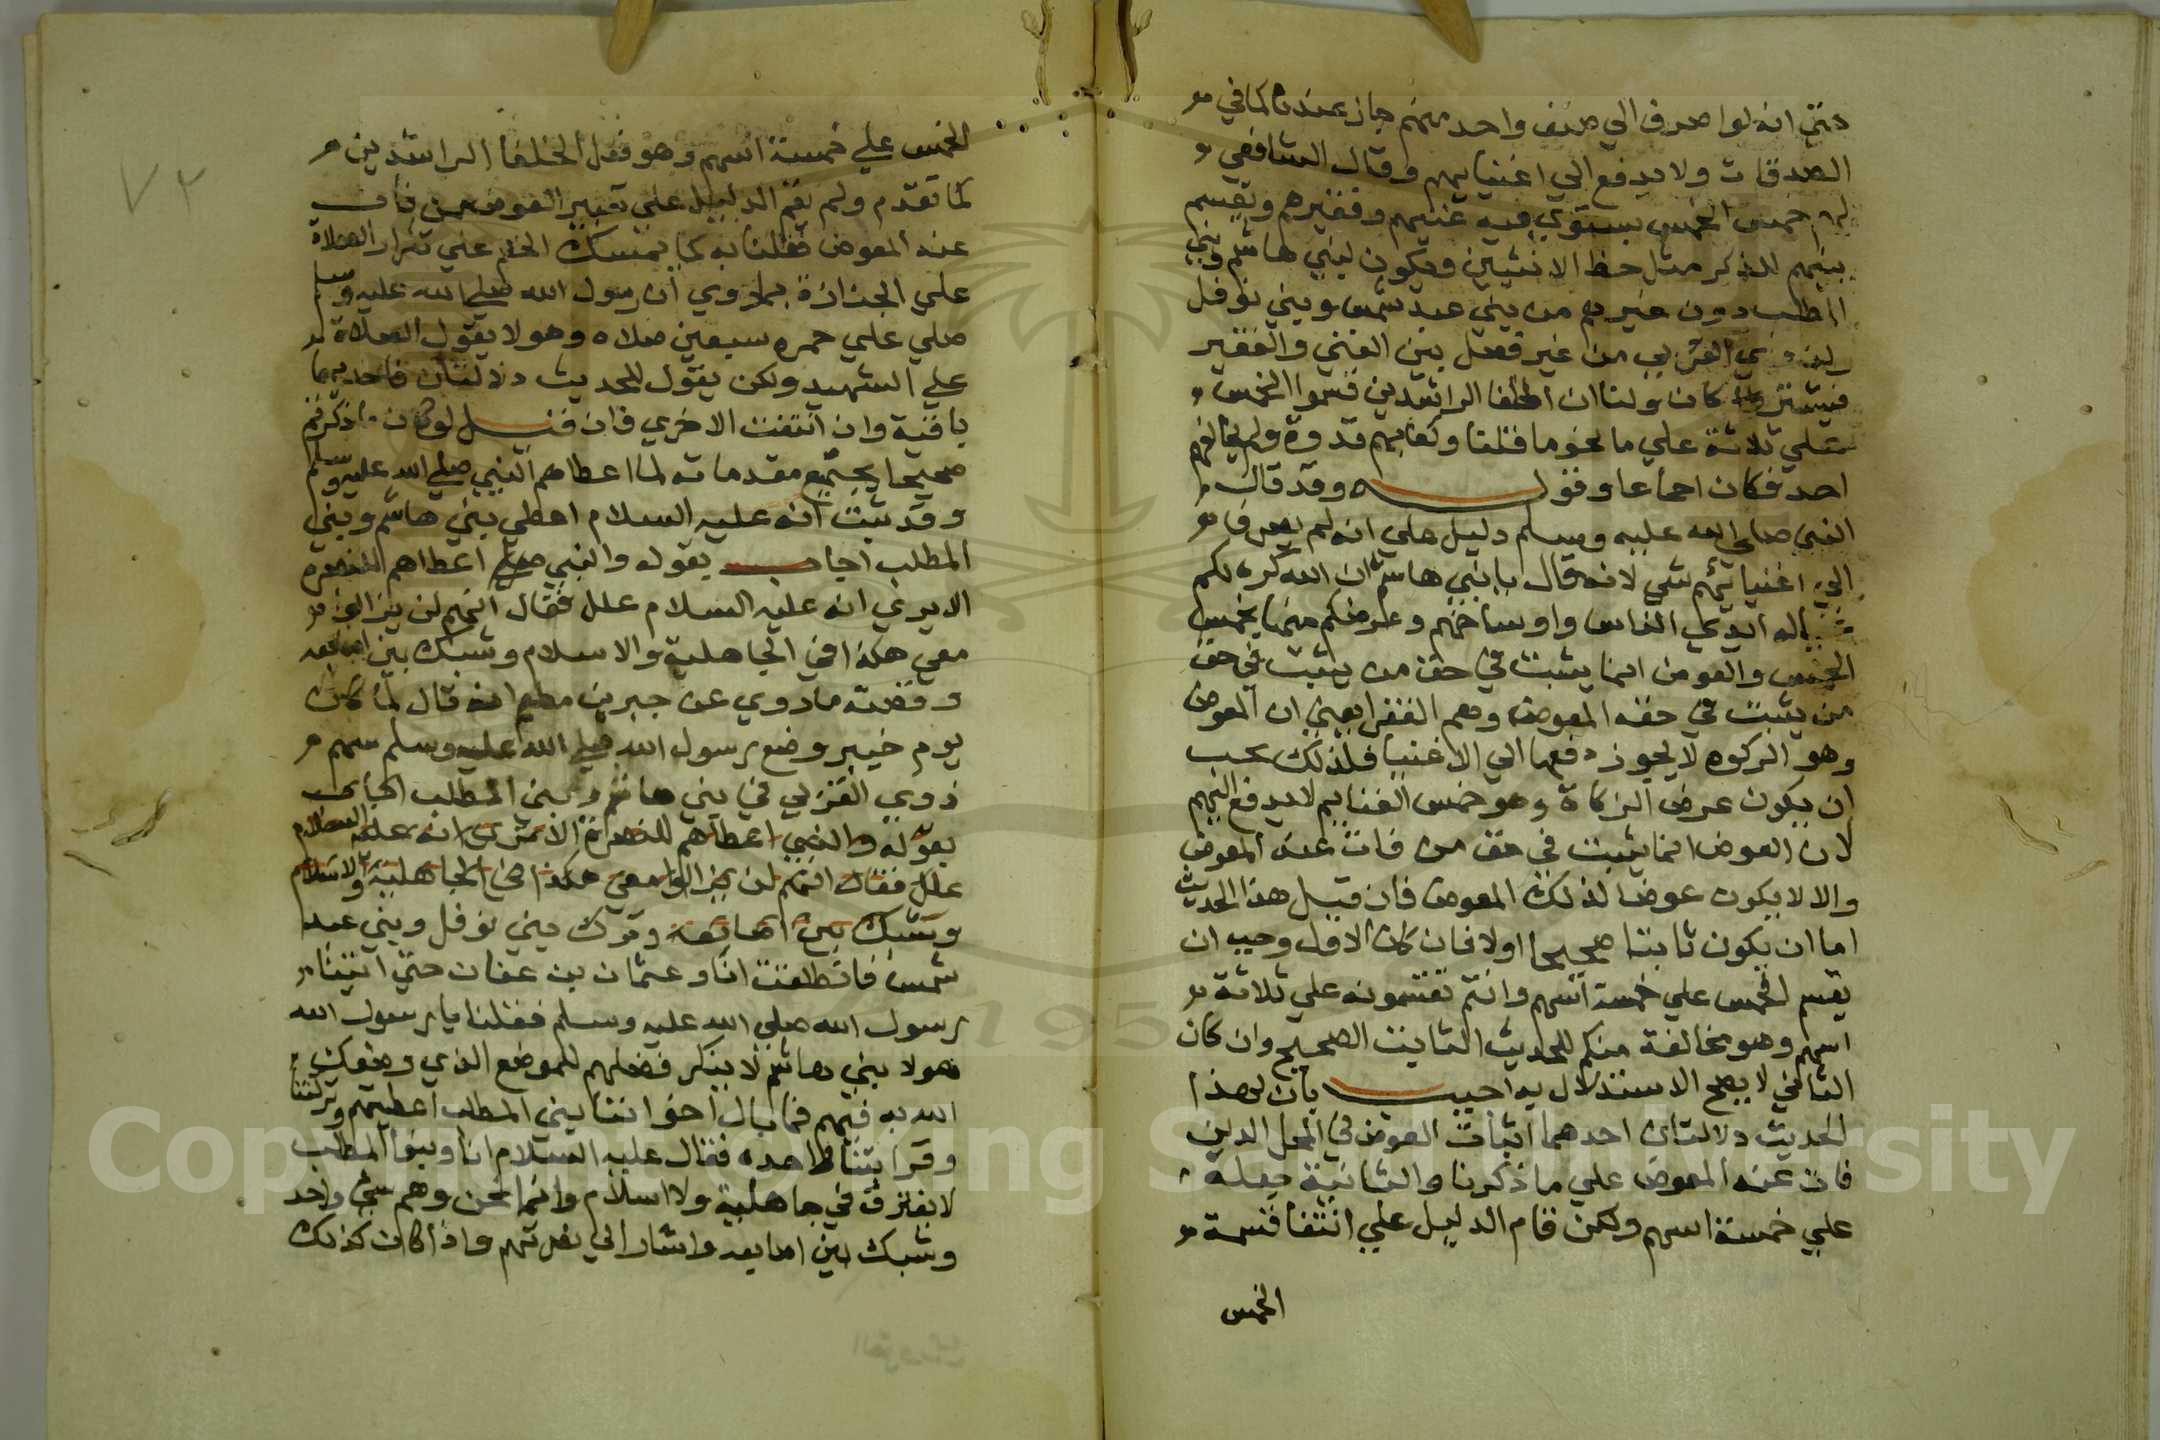 حتى انه لوا صرف الي صنف واحد منهم جاز عندنا كما في
الصدقات ولا يدفع الي اغنيايهم وقال الشافعي
لهم خمس الخمس يستوي فيه غنيهم وفقيرهم ويقسم
بينهم للذكر مثل حظ الانثيين ويكون لبني هاشم وبني
المطلب دون غيرهم من بني عبد شمس وبني نوفل
لذوي القربي من غير فصل بين الغني والفقير
فيشتركان ولنا ان الخلفا الراشدين قسموا الخمس
علي ثلاثة علي ما نحو ما قلنا وكفابهم قدوة ولم يخالفهم
احد فكان اجماعا وقوله وقد قال
النبي صلي الله عليه وسلم دليل علي انه لم يصرف
الي اغنيائهم شي لانه قال يا بني هاشم ان الله كره لكم
غسالة ايدي الناس واوساخهم وعوضكم منها بخمس
الخمس والعوض انما يثبت في حق من يثبت في حق
من يثبت في حقه المعوض وهم الفقرا يعني ان المعوض
وهو الزكوه لا يجوز دفعها الي الاغنيا فلذلك يجب
ان يكون عوض الزكاة وهو خمس الغنايم لا يدفع اليهم
لان العوض انما يثبت في حق من فات عنه المعوض
والا لا يكون عوضا لذلك المعوض فان قيل هذا الحديث
اما ان يكون ثابتا صحيحا اولا فان كان الاول وجب ان
يقسم الخمس علي خمسة اسهم وانتم تقسمونه علي ثلاثة
اسهم وهو مخالفة منكم للحديث الثابت الصحيح وان كان
الثاني لا يصح الاستدلال به اجيب بان لهذا
الحديث دلالتان احدهما اثبات العوض في المحل الذين
فات عنه المعوض علي ما ذكرنا والثانية جعله
علي خمسة اسهم ولكن قام الدليل علي انتفا قسمة
الخمس
٧٢
الخمس علي خمسة اسهم وهو فعل الخلفا الراشدين
كما تقدم ولم يقم الدليل علي تغيير العوض ممن فات
عنه المعوض فقلنا به كما تمسك الخصم علي تكرار الصلاة
علي الجنازة بما روي ان رسول الله صلي الله عليه وسلم
صلي علي حمزه سبعين صلاه وهو لا يقول الصلاة
علي الشهيد ولكن يقول للحديث دلالتان فاحديهما
باقية وان انتفت الاخري فان قيل لو كان ما ذكرتم
صحيحا بجميع مقدماته لما اعطاهم النبي صلي الله عليه وسلم
وقد ثبت انه عليه السلام اعطي بني هاشم وبني
المطلب اجاب بقوله والنبي صلعم اعطاهم للنصره
الا يري انه عليه السلام علل فقال انهم لن يزالوا
معي هكذا في الجاهلية والاسلام وشبك بين اصابعه
وقصته ما روي عن جبير بن مطعم انه قال لما كان
يوم خيبر وضع رسول الله صلي الله عليه وسلم سهم
ذوي القربي في بني هاشم وبني المطلب اجاب
بقوله والنبي اعطاهم للنصرة الا تري انه عليه السلام
علل فقال انهم لن يزالوا معي هكذا في الجاهلية والاسلام
وشبك بين اصابعه وترك بني نوفل وبني عبد
شمس فانطلقت انا وعثمان بن عفان حتي اتينا
رسول الله صلي الله عليه وسلم فقلنا يا رسول الله
هولا بني هاشم لا ينكر فضلهم للموضع الذي وضعك
الله به فيهم فما بال اخواننا بني المطلب اعطيتهم وتركتنا
وقرابتنا واحده فقال عليه السلام انا وبنوا المطلب
لا نفترق في جاهلية ولا اسلام وانما نحن وهم شي واحد
وشبك بين اصابعه واشار الي نصرتهم واذا كان كذلك